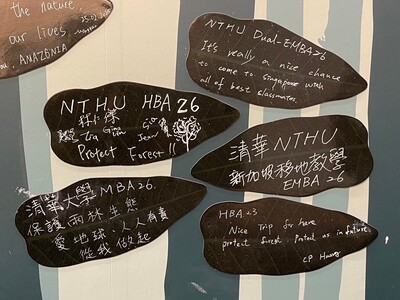 the nature
our lives
AMAZONIA
25.02
NTHU Dual-EMBA26
It's really a nice chance
to come to Singapore with
all of best classmates.
NTHU HBA 26
林 傑
Tia Gina
Protect Forest!!
清華NTHU
新加坡移地教學
EMBA 26
清華大學 MBA26.
保護雨林生態
愛地球,人人有責
從我做起
HBA23
Nice Trip for here
protect forest Protect us in future.
CP Huang